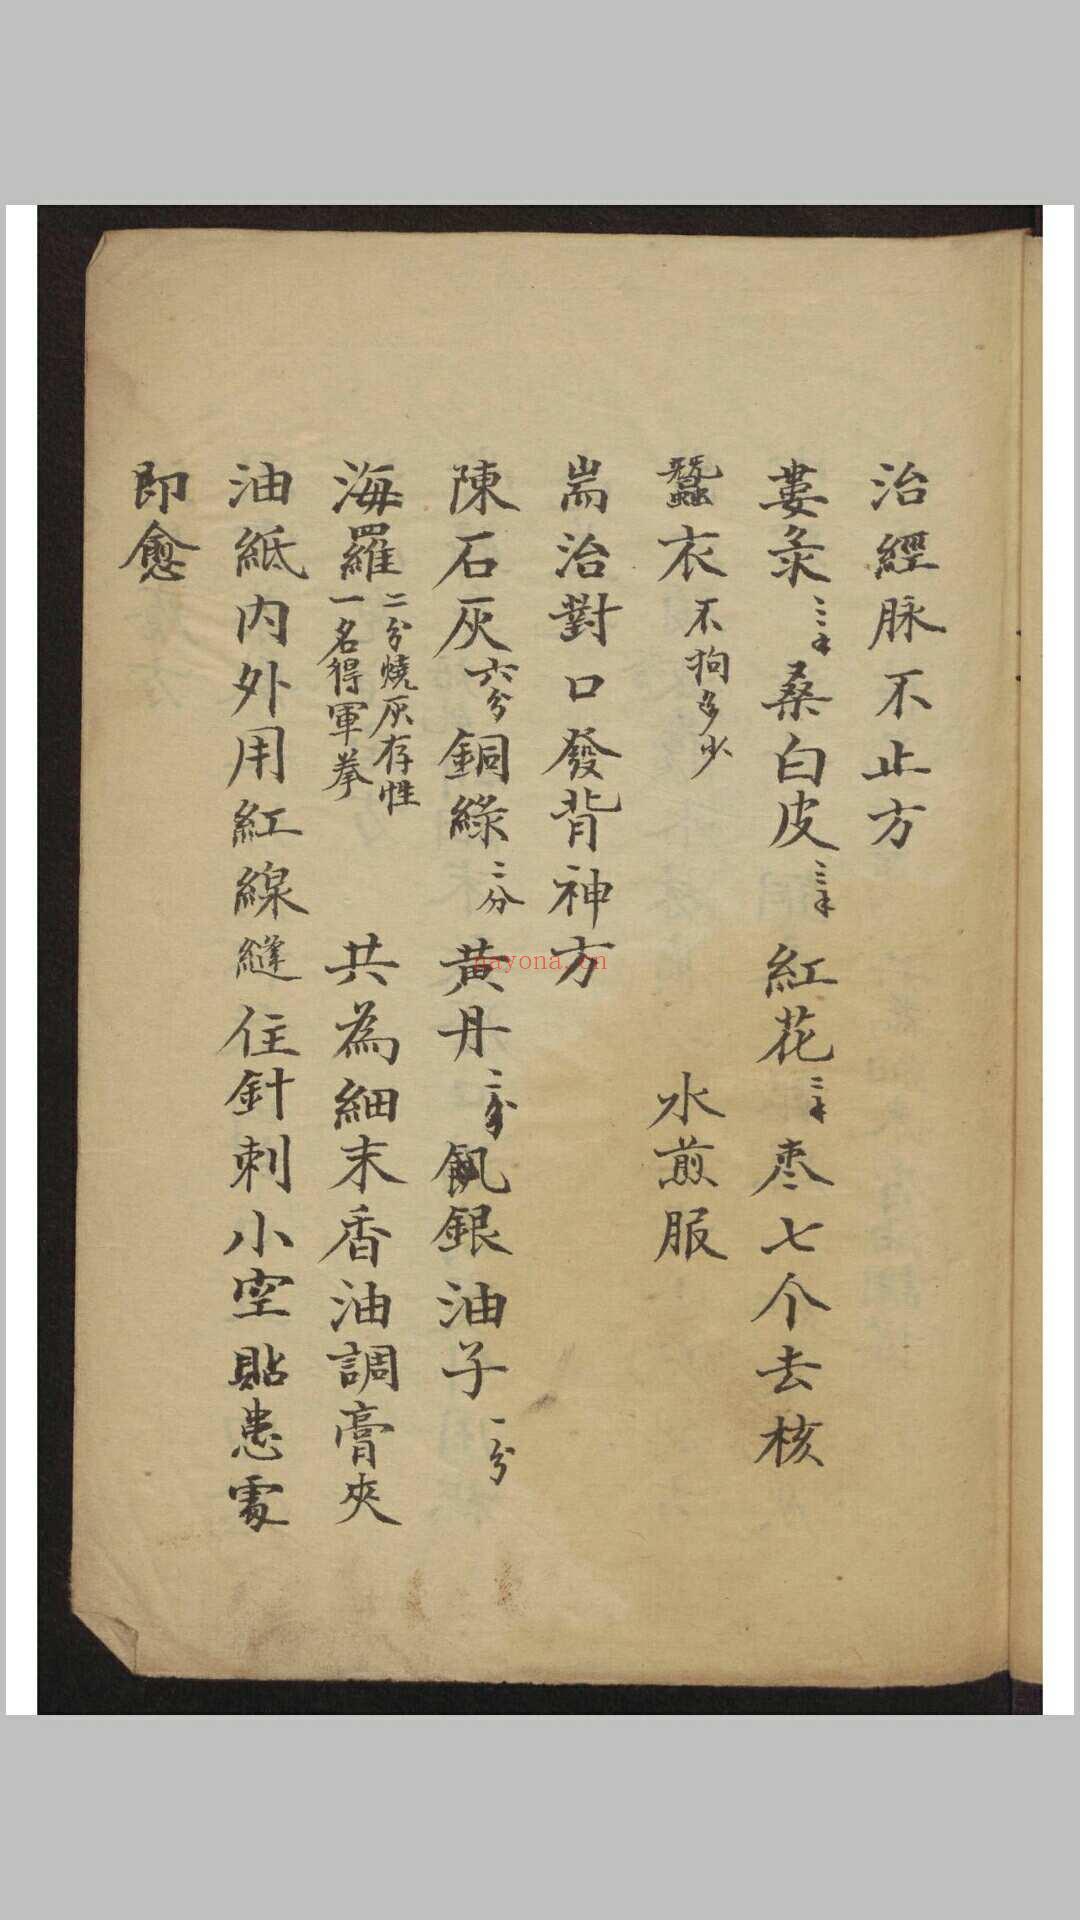 治經脉不止方
蔞汞三三个桑白皮三个紅花三个枣七个去核
蠶衣不狗多少 水煎服
耑治對口發背神方
陳石灰六分銅綠二分黃丹二分飢銀油子一分
海羅二分燒灰存性一名得軍拳 共為細末香油調膏夾
油紙內外用紅線縫住針刺小空貼患處
即愈
nayona.cn